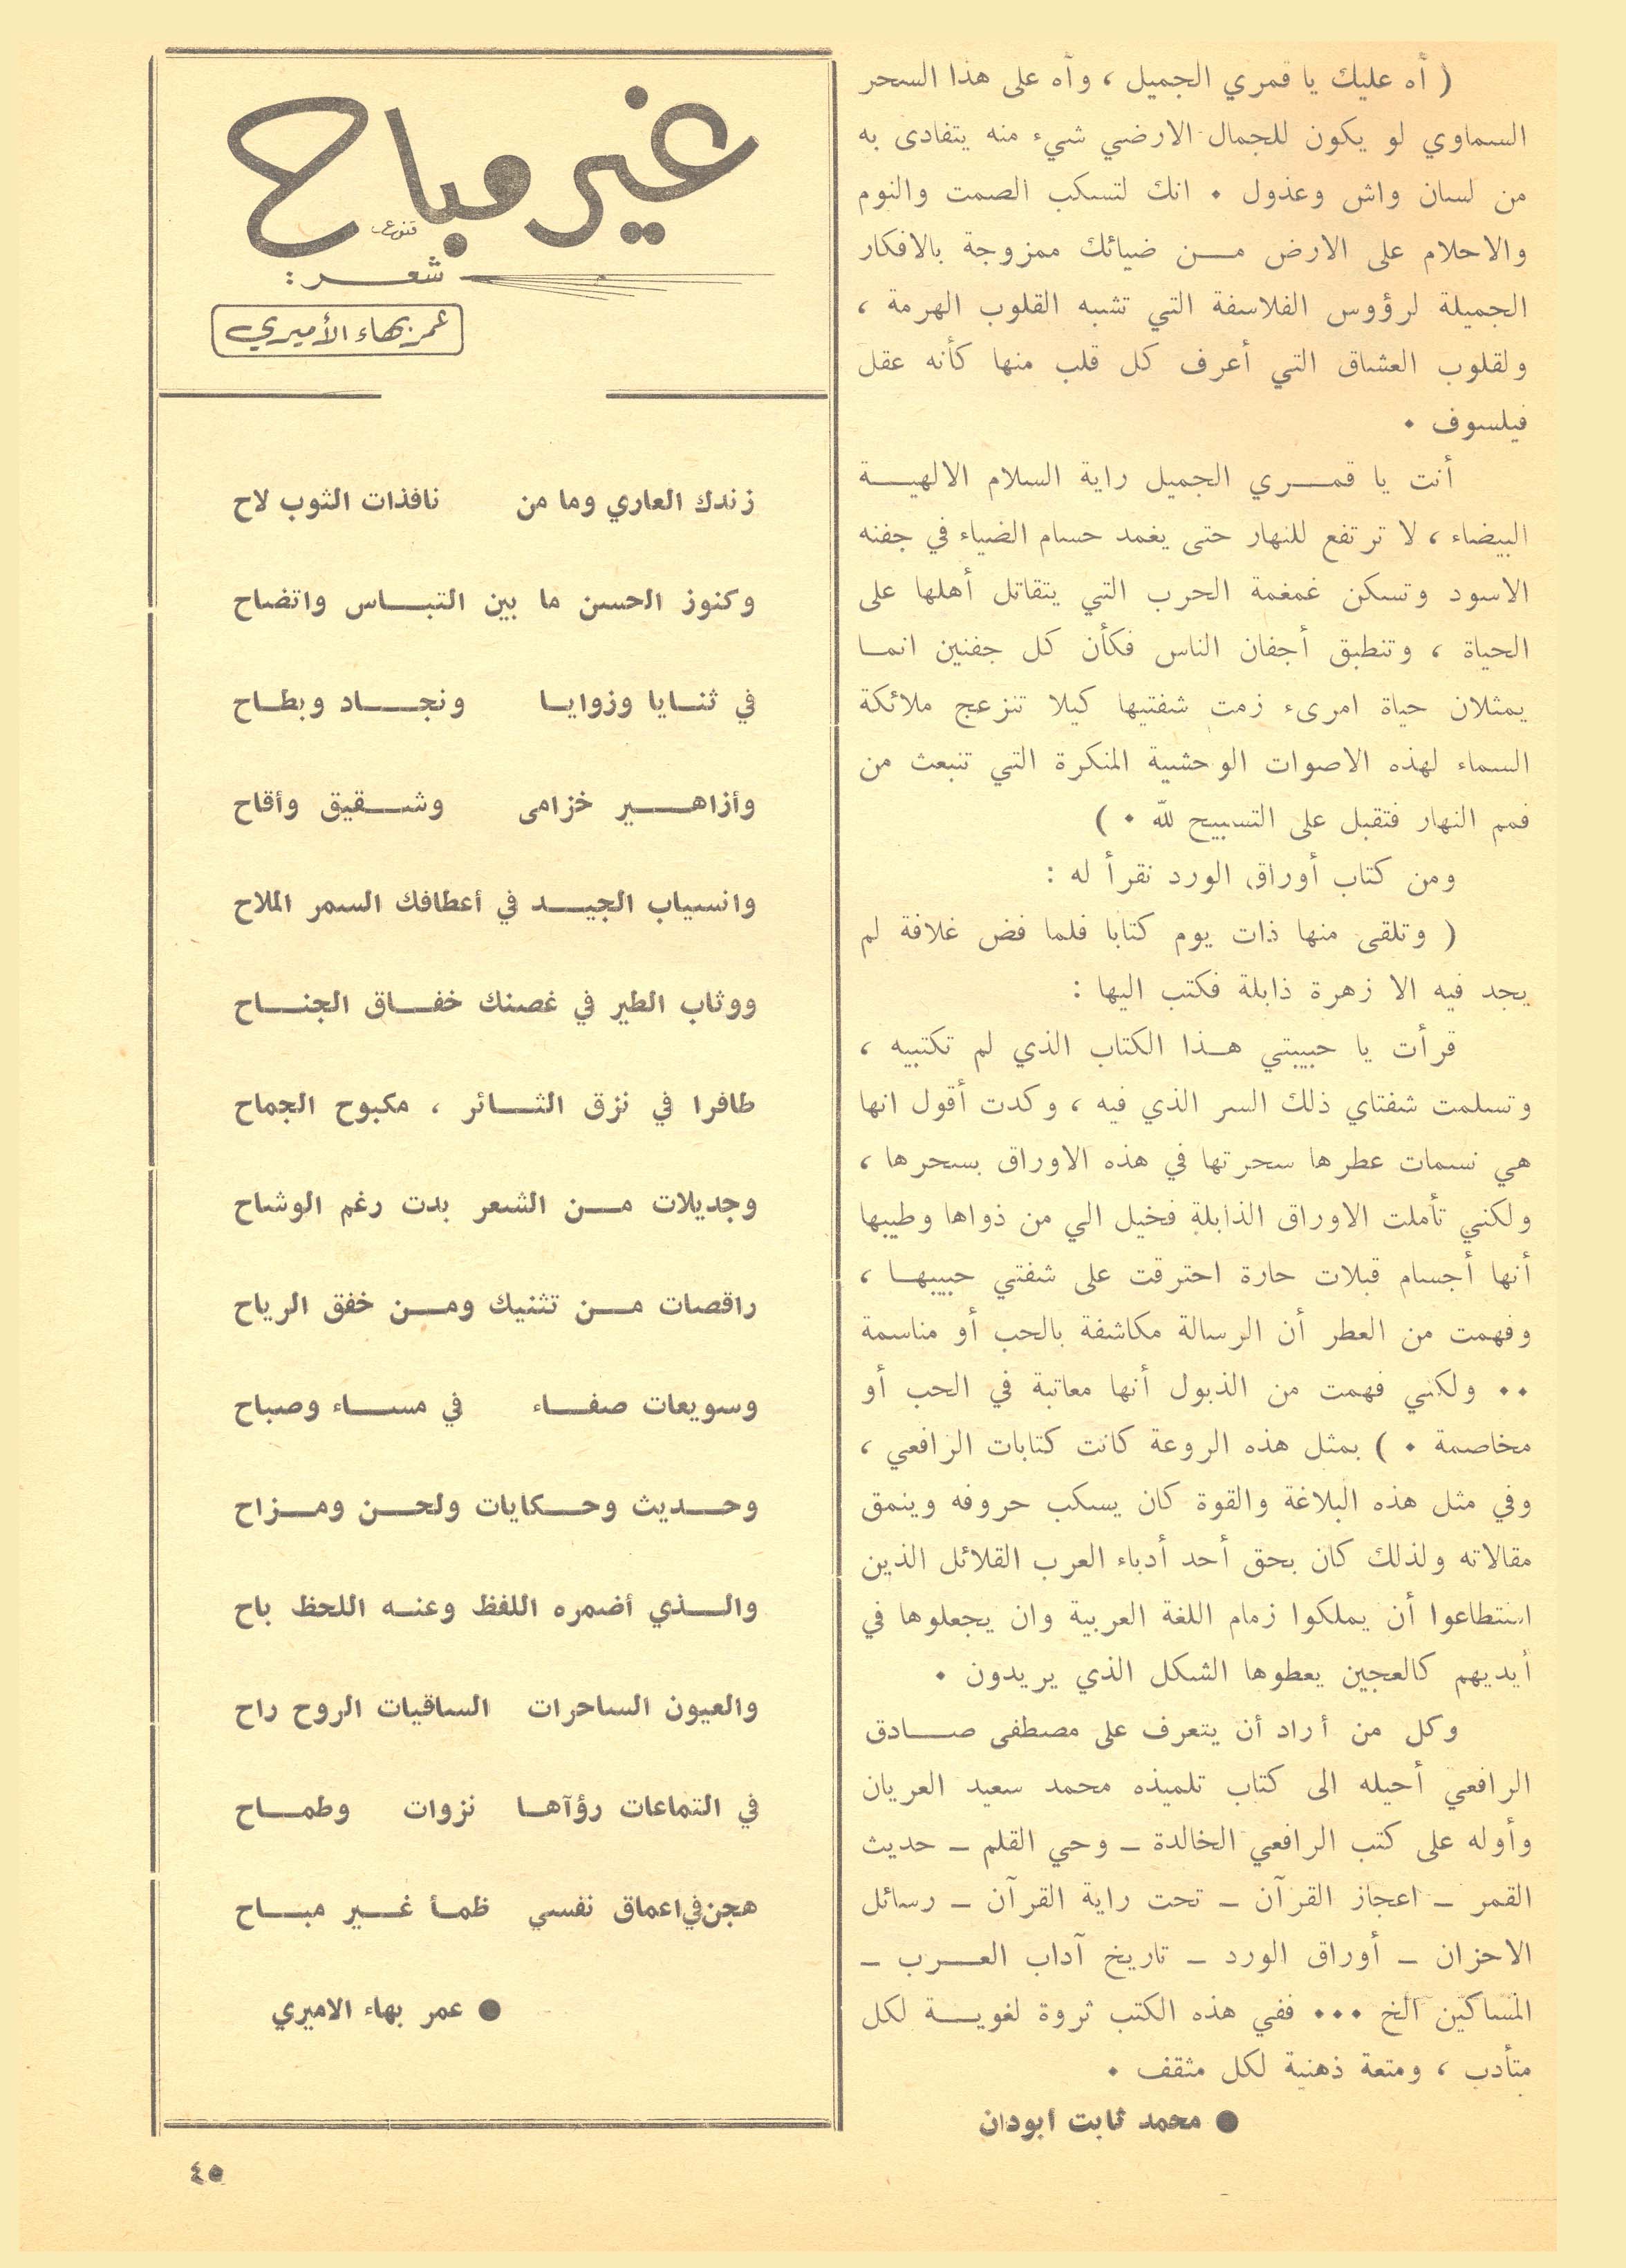 ( آه عليك يا قمري الجميل ، وآه على هذا السحر
السماوي لو يكون للجمال الارضي شيء منه يتفادى به
من لسان واش وعذول ٠ انك لتسكب الصمت والنوم
والاحلام على الارض مـن ضيائك ممزوجة بالافكار
الجميلة لرؤوس الفلاسفة التي تشبه القلوب الهرمة ،
ولقلوب العشاق التي أعرف كل قلب منها كأنه عقل
فيلسوف ٠
أنت يا قمـري الجميل راية السلام الالهيـة
البيضاء ، لا ترتفع للنهار حتى يغمد حسام الضياء في جفنه
الاسود وتسكن غمغمة الحرب التي يتقاتل أهلها على
الحياة ، وتنطبق أجفان الناس فكأن كل جفنين انما
يمثلان حياة امرىء زمت شفتيها كيلا تنزعج ملائكة
السماء لهذه الاصوات الوحشية المنكرة التي تنبعث من
فمم النهار فتقبل على التسبيح لله ٠ )
ومن كتاب أوراق الورد نقرأ له :
( وتلقى منها ذات يوم كتابا فلما فض غلافة لم
يجد فيه الا زهرة ذابلة فكتب اليها :
قرأت يا حبيبتي هـذا الكتاب الذي لم تكتبيه ،
وتسلمت شفتاي ذلك السر الذي فيه ، وكدت أقول انها
هي نسمات عطرها سحرتها في هذه الاوراق بسحرها ،
ولكني تأملت الاوراق الذابلة فخيل الي من ذواها وطيبها
أنها أجسام قبلات حارة احترقت على شفتي حبيبهـا ،
وفهمت من العطر أن الرسالة مكاشفة بالحب أو مناسمة
٠٠ ولكني فهمت من الذبول أنها معاتبة في الحب أو
مخاصمة ٠ ) بمثل هذه الروعة كانت كتابات الرافعي ،
وفي مثل هذه البلاغة والقوة كان يسكب حروفه وينمق
مقالاته ولذلك كان بحق أحد أدباء العرب القلائل الذين
استطاعوا أن يملكوا زمام اللغة العربية وان يجعلوها في
أيديهم كالعجين يعطوها الشكل الذي يريدون ٠
وكل من أراد أن يتعرف على مصطفى صـادق
الرافعي أحيله الى كتاب تلميذه محمد سعيد العريان
وأوله على كتب الرافعي الخالدة ــ وحي القلم ــ حديث
القمر ــ اعجاز القرآن ــ تحت راية القرآن ــ رسائل
الاحزان ــ أوراق الورد ــ تاريخ آداب العـرب ــ
المساكين الخ ٠٠٠ ففي هذه الكتب ثروة لغويـة لكل
متأدب ، ومتعة ذهنية لكل مثقف ٠
● محمد ثابت أبودان
غير مباح
شعـر :
عمر بهاء الأميري
زندك العاري وما من نافذات الثوب لاح
وكنوز الحسن ما بين التبـاس واتضاح
في ثنـايا وزوايـا ونجـاد وبطـاح
وأزاهـير خزامى وشـقيق وأقاح
وانسياب الجيـد في أعطافك السمر الملاح
ووثاب الطير في غصنك خفـاق الجنـاح
طافرا في نزق الثـائر ، مكبوح الجماح
وجديلات مـن الشعر بدت رغم الوشاح
راقصات مـن تثنيك ومـن خفق الرياح
وسويعات صفـاء في مسـاء وصباح
وحـديث وحـكايات ولحـن ومـزاح
والـذي أضمره اللفظ وعنـه اللحظ باح
والعيون الساحرات الساقيات الروح راح
في التماعات رؤآهـا نزوات وطمـاح
هجن في اعماق نفسي ظمـأ غـير مبـاح
● عمر بهاء الاميري
٤٥